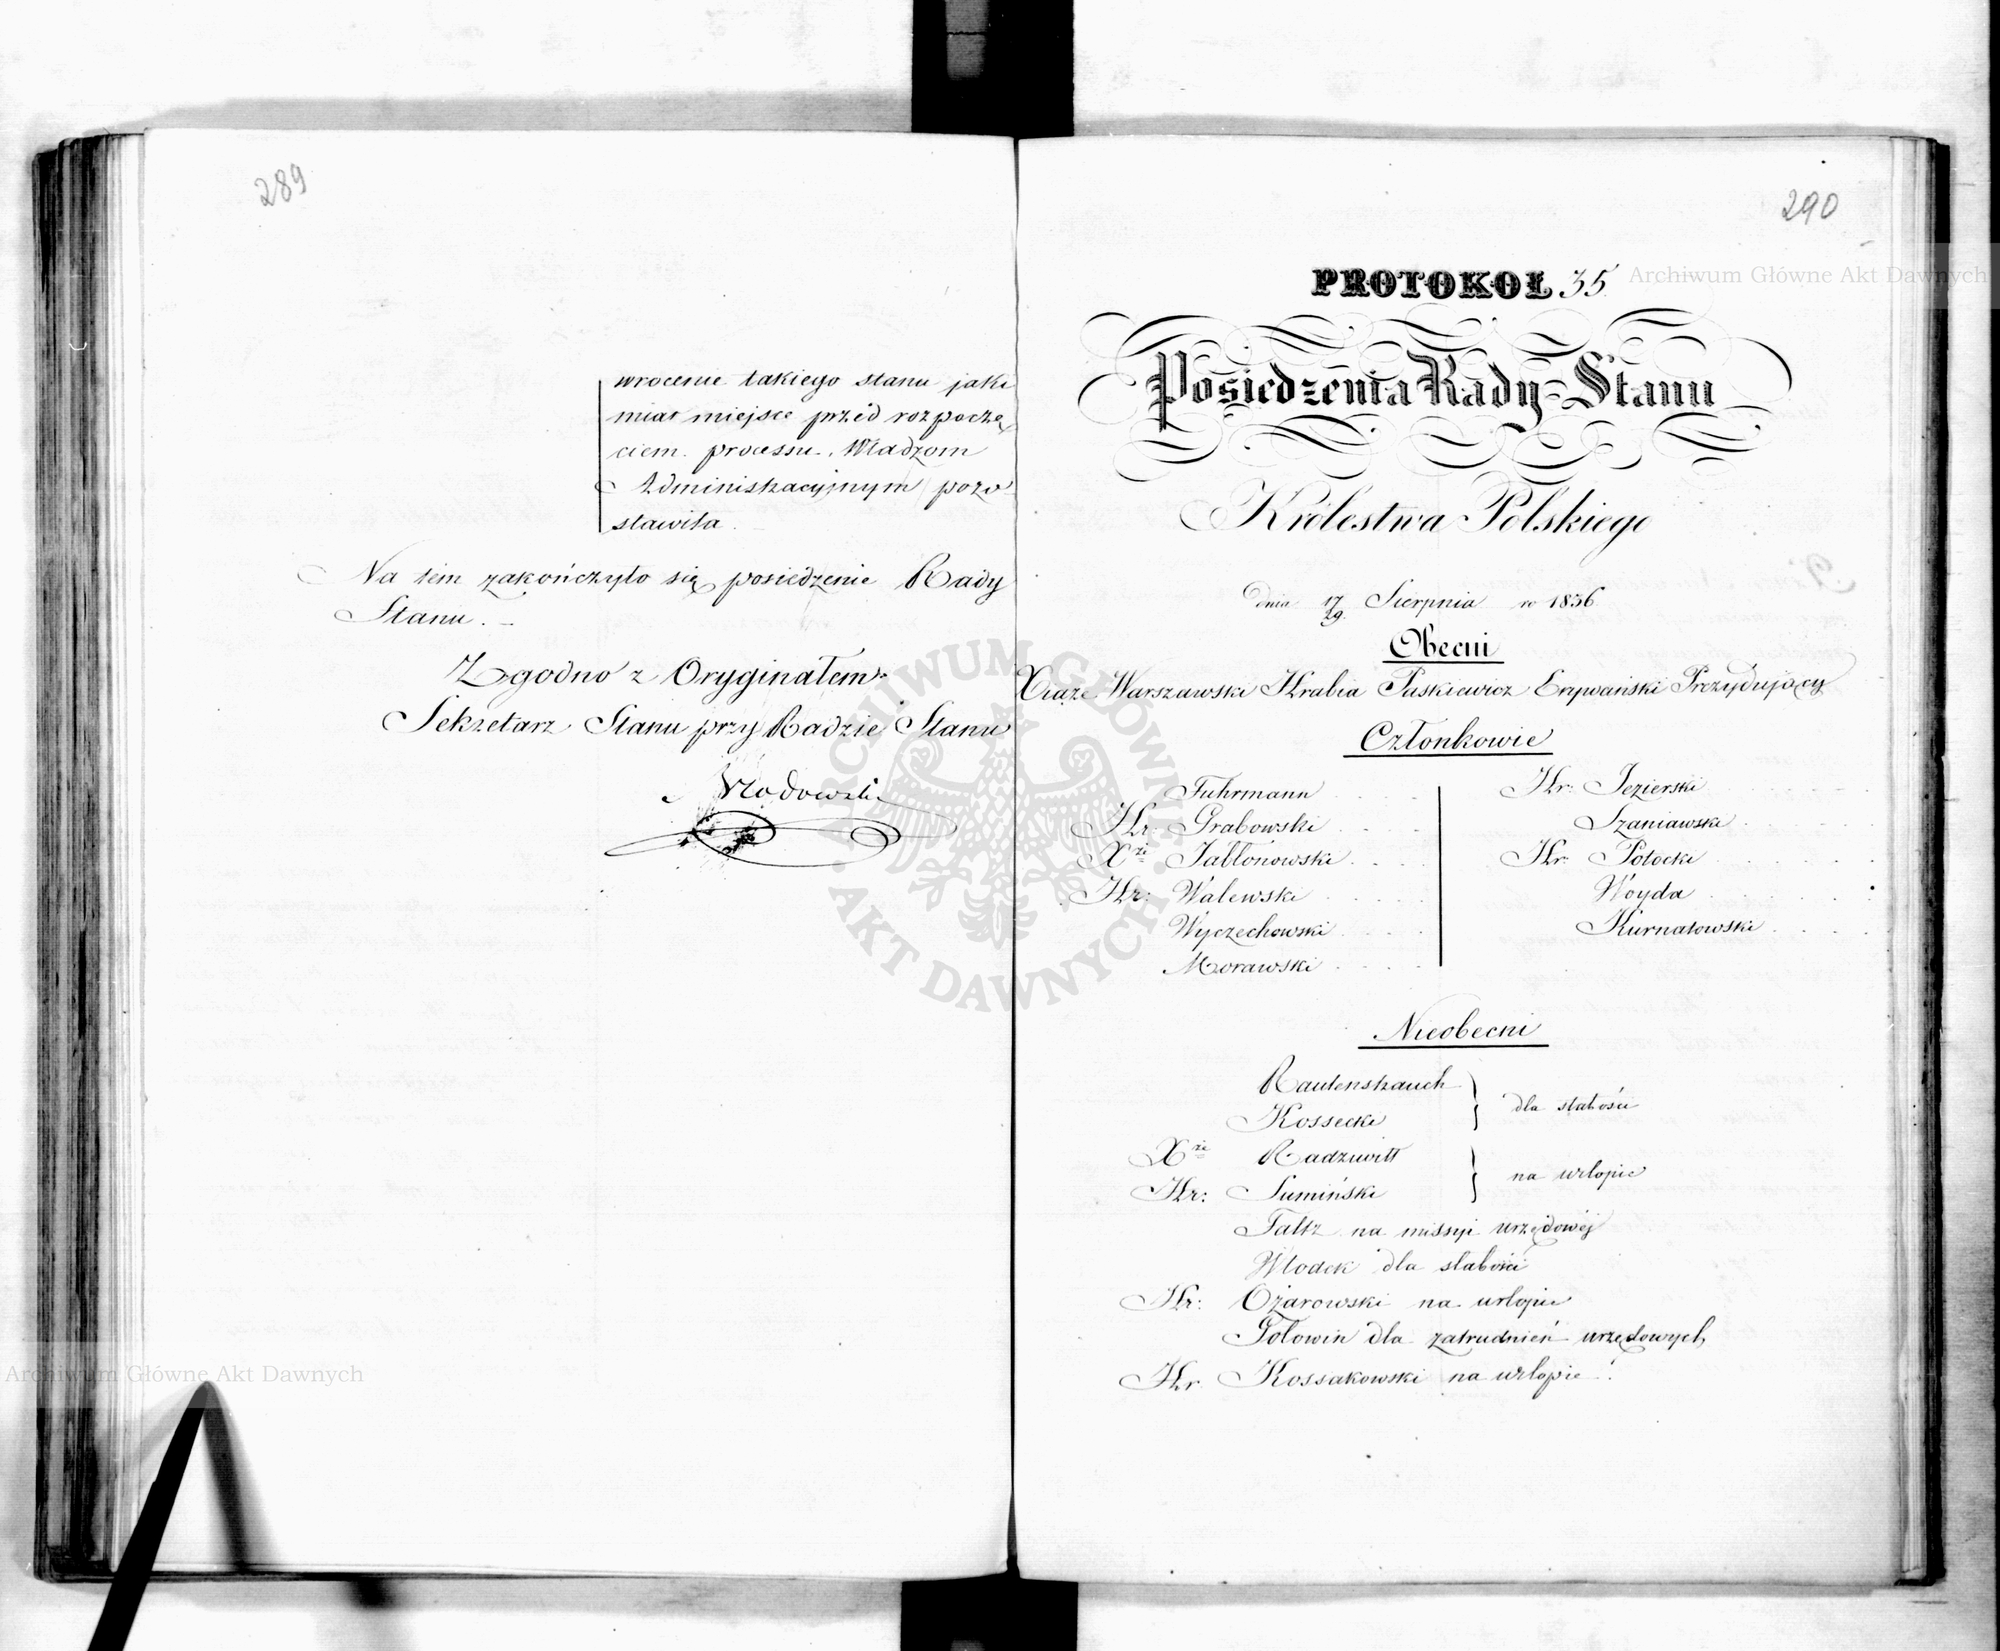 289
wrocenie takiego stanu jaki
miał miejsce przed rozpoczę
ciem processu, Władzom
Administracyjnym pozo
stawiła.
Na tém zakończyło się posiedzenie Rady
Stanu.
Zgodno z Oryginałem
Sekretarz Stanu przy Radzie Stanu
290
PROTOKOŁ 35
Posiedzenia Rady Stanu
Królestwa Polskiego
Dnia 17/29 Sierpnia ro 1836
Obecni
Xiąże Warszawski Hrabia Paskiewicz Erywański Prezydujący
Członkowie
Fuhrmann
Hr: Grabowski
Xże Jabłonowski
Hr: Walewski
Wyczechowski
Morawski
Hr: Jezierski
Szaniawski
Hr: Potocki
Woyda
Kurnatowski
Nieobecni
Rautenstrauch
Kossecki
dla słabości
Xże Radziwiłł
Hr: Sumiński
na urlopie
Faltz na missyi urzędowéj
Włodek dla słabości
Hr: Ożarowski na urlopie
Gołowin dla zatrudnień urzędowych
Hr. Kossakowski na urlopie.
Archiwum Główne Akt Dawnych
ARCHIWUM GŁÓWNE AKT DAWNYCH
Archiwum Główne Akt Dawnych